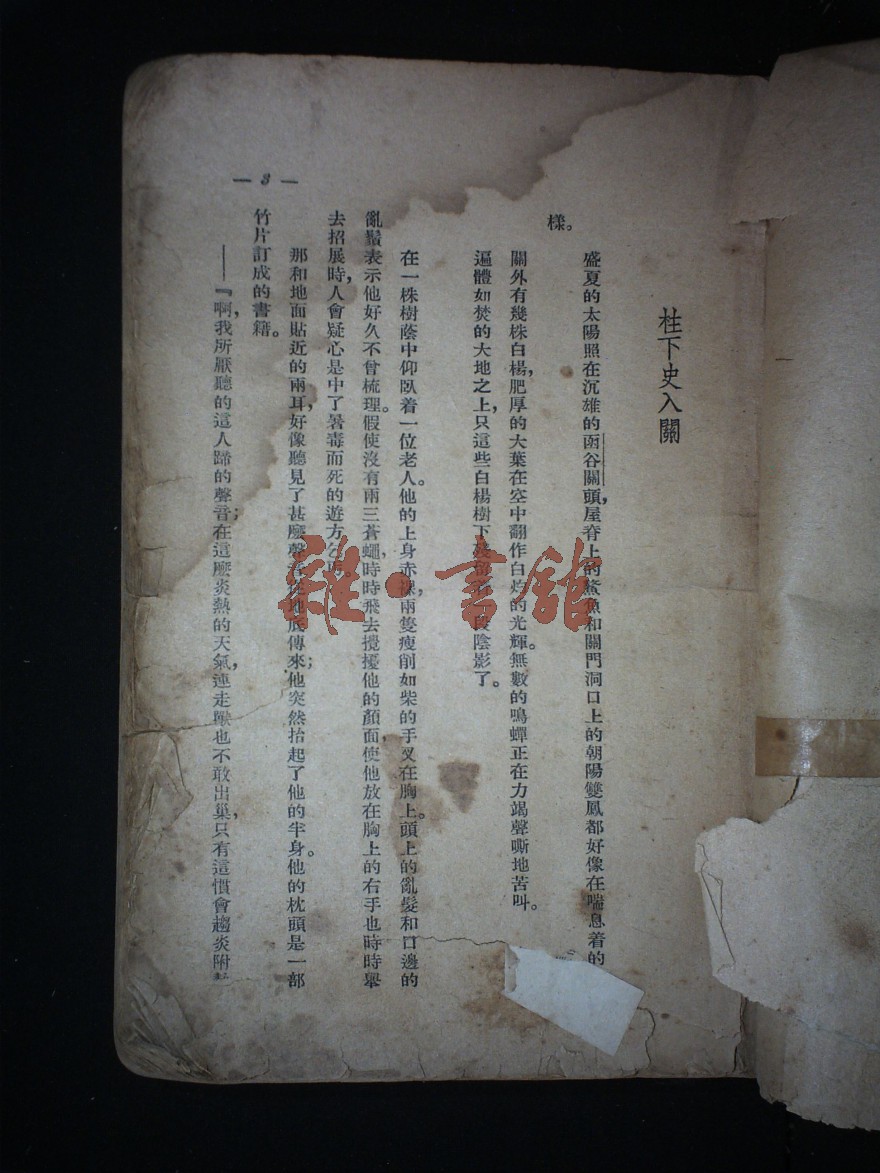 柱下史入關
盛夏的太陽照在沉雄的函谷關頭，屋脊上的鰲魚和關門洞口上的朝陽雙鳳都好像在喘息着的
樣。
關外有幾株白楊，肥厚的大葉在空中翻作白灼的光輝。無數的鳴蟬正在力竭聲嘶地苦叫。
遍體如焚的大地之上，只這些白楊樹下 段陰影了。
在一株樹蔭中仰臥着一位老人。他的上身赤裸，兩隻瘦削如柴的手叉在胸上。頭上的亂髮和口邊的
亂鬚表示他好久不曾梳理。假使沒有兩三蒼蠅，時時飛去攪擾他的顏面，使他放在胸上的右手也時時舉
去招展時，人會疑心是中了暑毒而死的遊方乞丐。
那和地面貼近的兩耳，好像聽見了甚麼聲音從地底傳來；他突然抬起了他的半身。他的枕頭是一部
竹片訂成的書籍。
——『啊，我所厭聽的這人蹄的聲音；在這麼炎熱的天氣，連走獸也不敢出巢，只有這慣會趨炎附
— 3 —
雜·書館